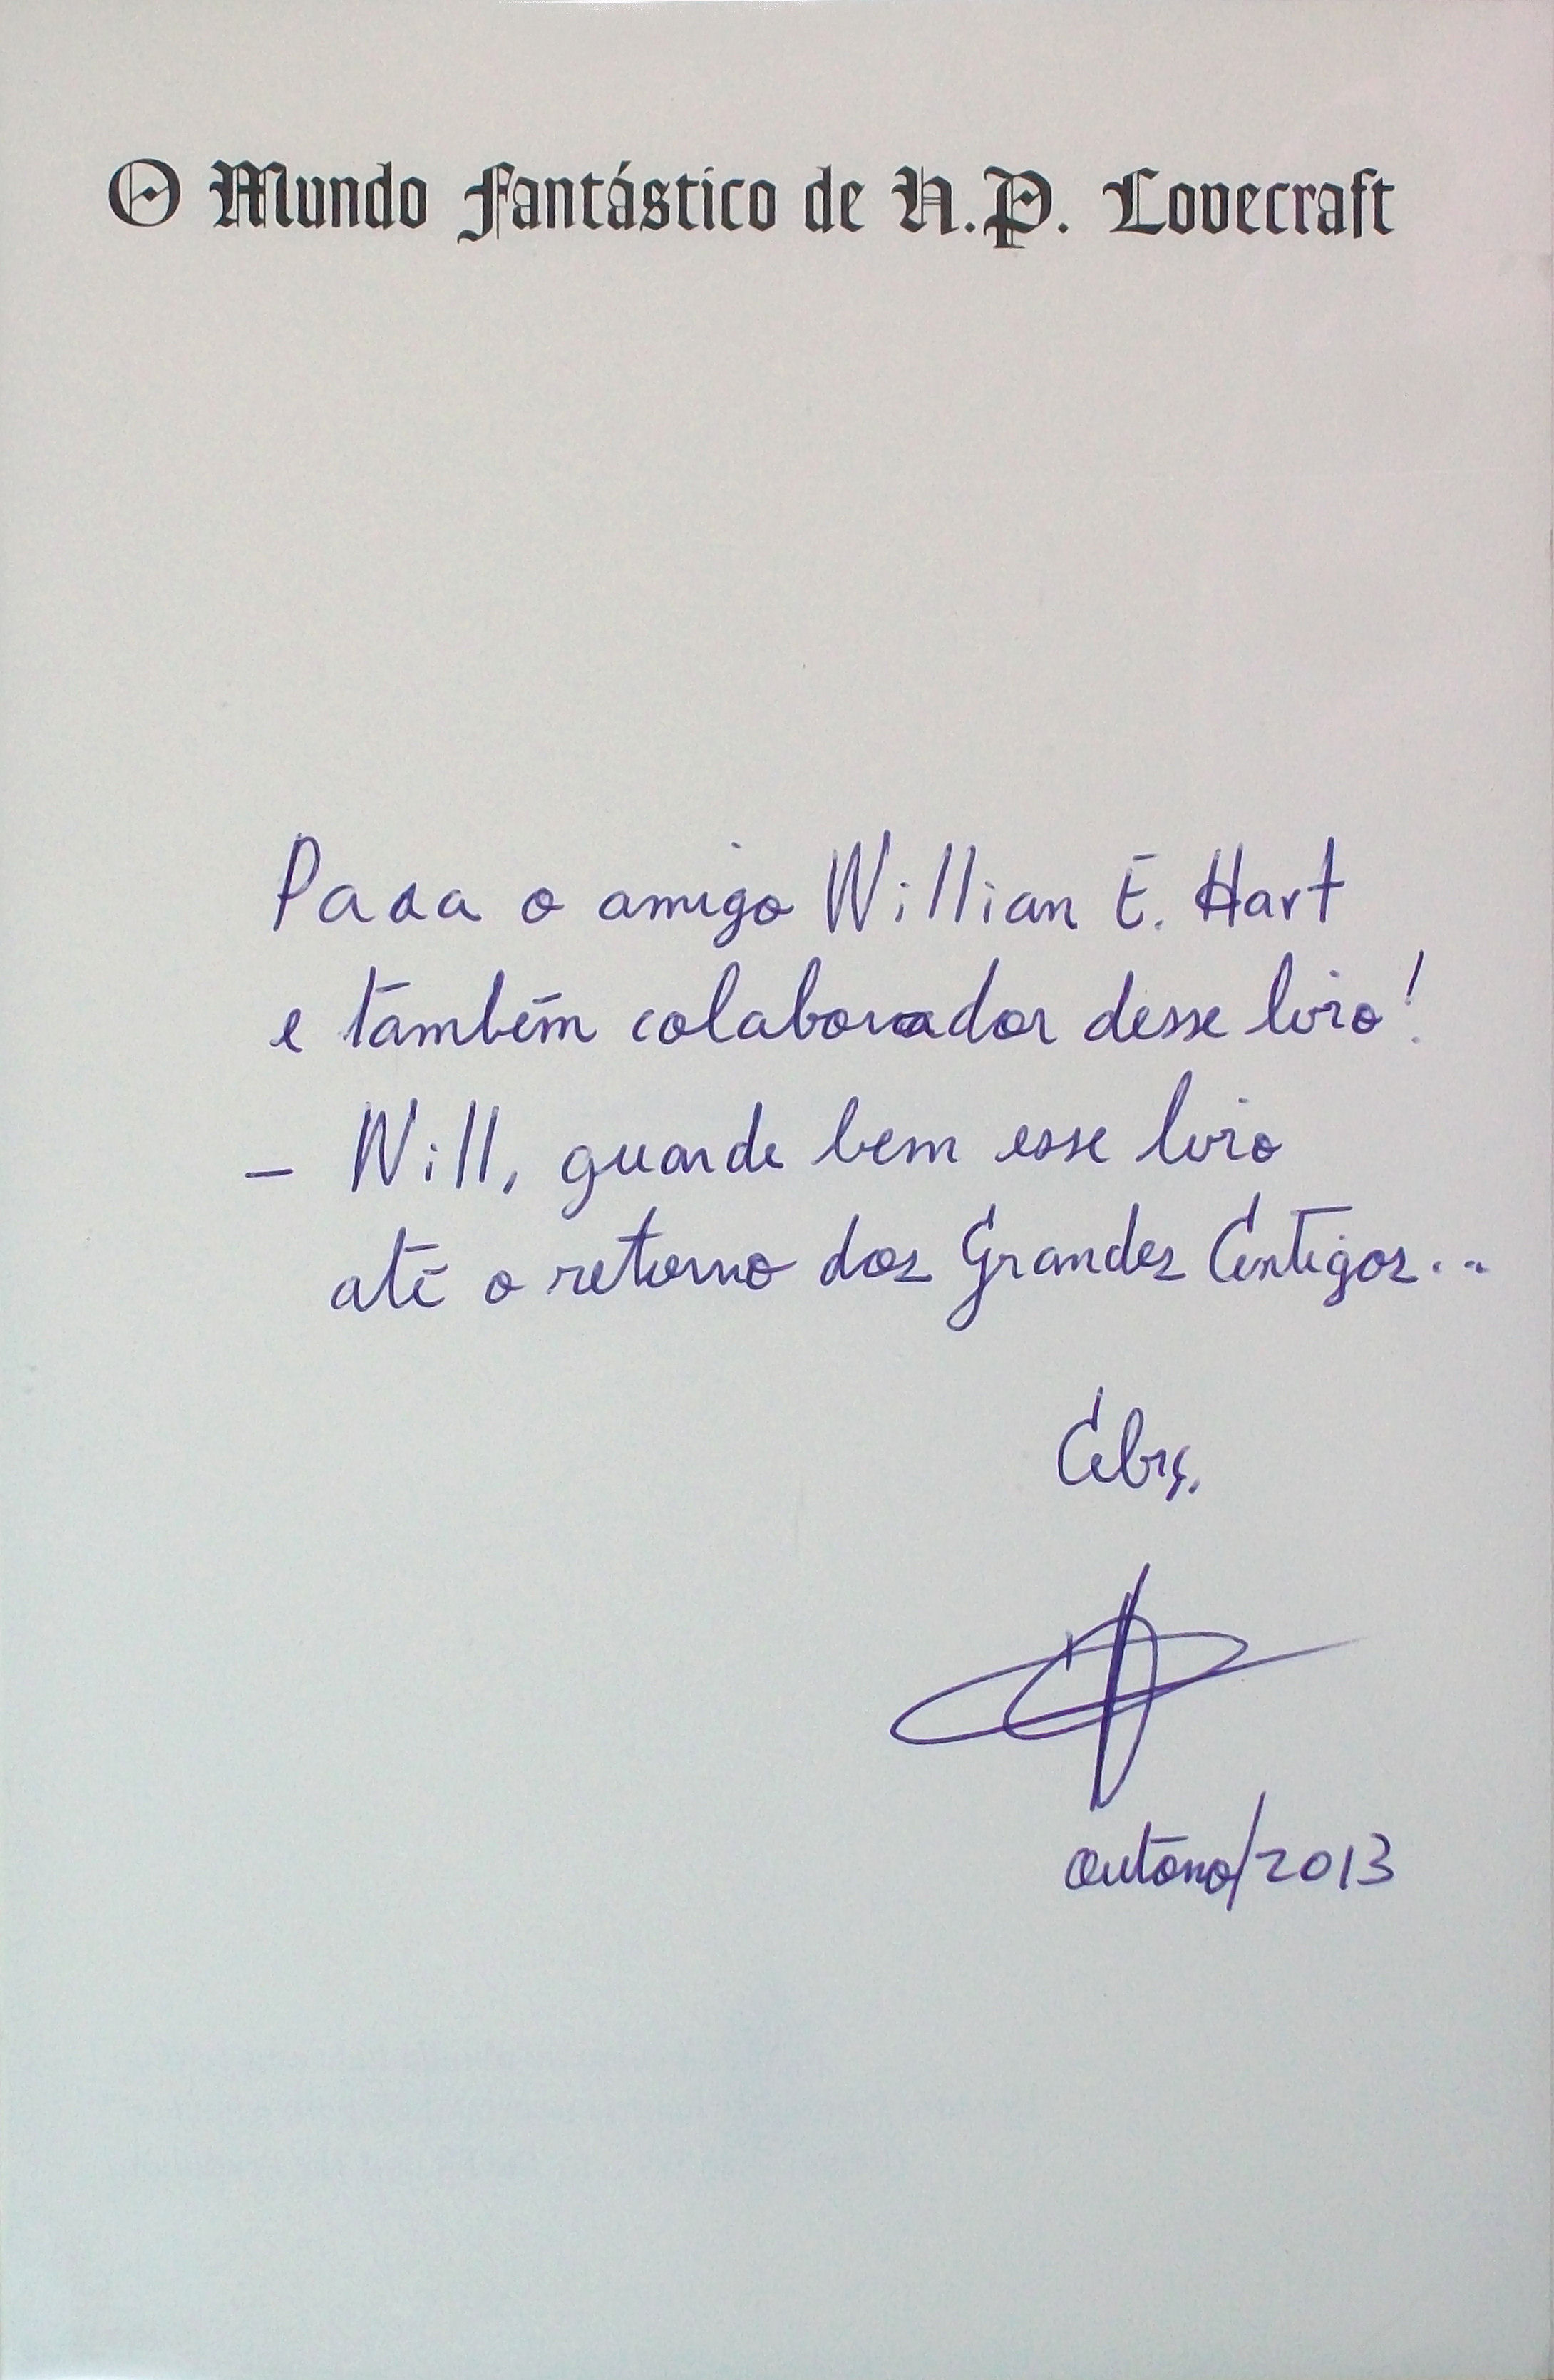 O Mundo Fantástico de H.P. Lovecraft
Para o amigo Willian E. Hart
e também colaborador desse livro!
– Will, guarde bem esse livro
até o retorno dos Grandes Antigos...
Abrç.
outono/2013